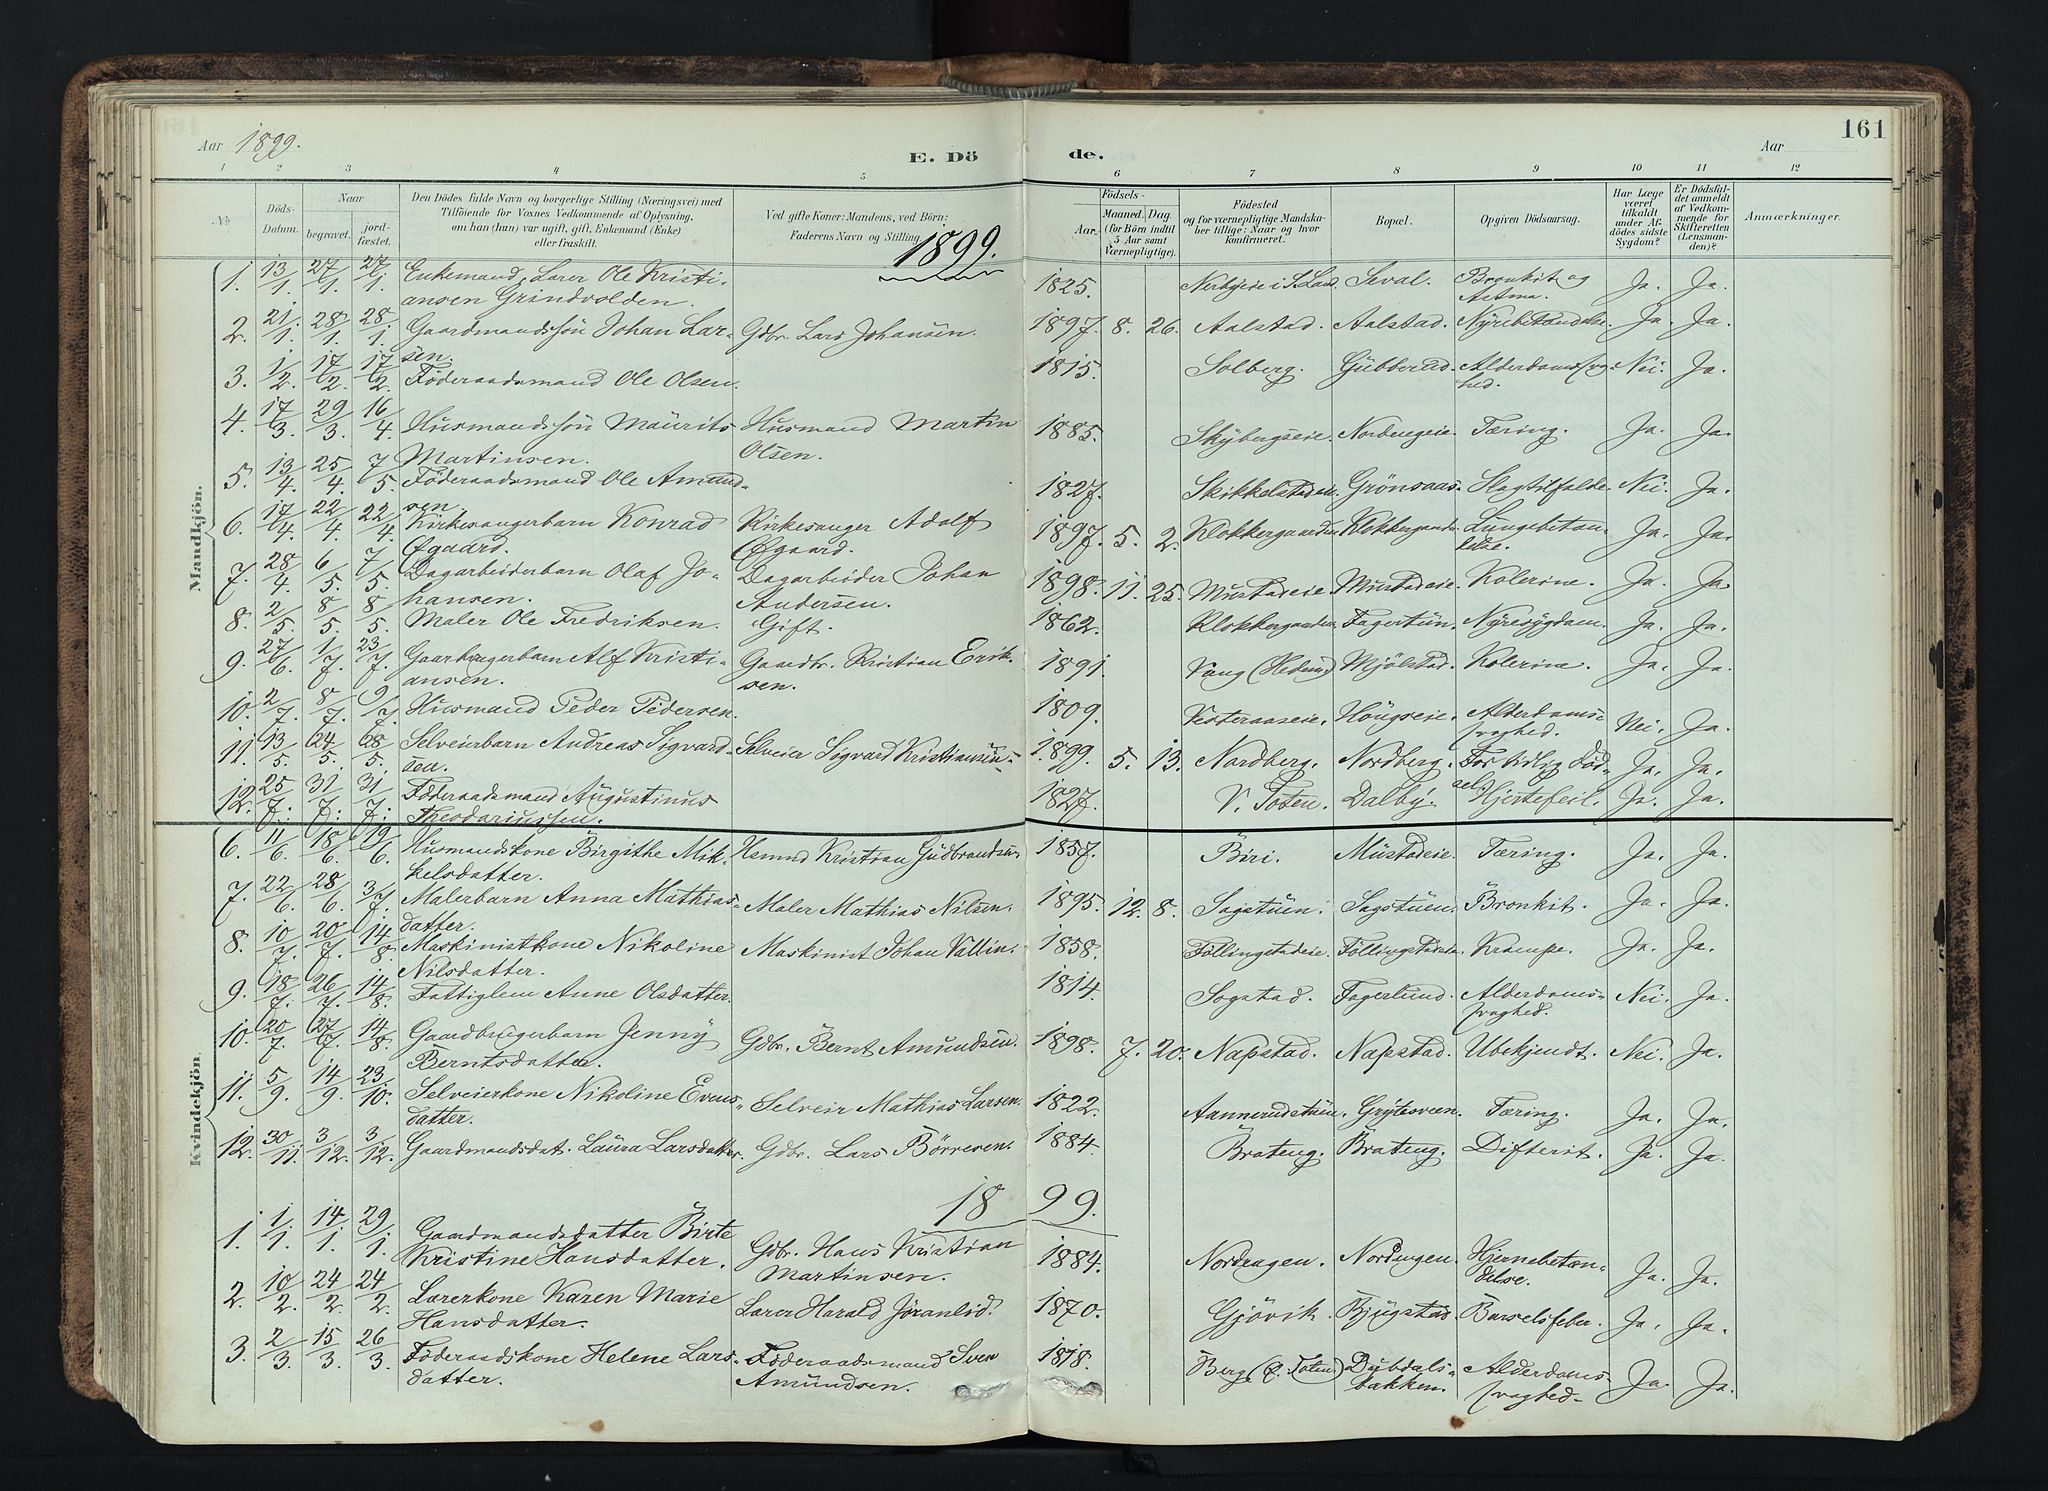 Aar 1899.
E. Dö
de.
Aar
161
1 2 3 4 5 6 7 8 9 10 11 12
№
Döds-Datum.
Naar
begravet.
jord-fæstet.
Den Dödes fulde Navn og borgerlige Stilling (Næringsvei) med
Tilföiende for Voxnes Vedkommende af Oplysning,
om han (hun) var ugift, gift, Enkemand (Enke)
eller fraskilt.
Ved gifte Koner: Mandens, ved Börn:
Faderens Navn og Stilling.
Födsels-
Aar.
Maaned. Dag.
(for Börn indtil
5 Aar samt
Værnepligtige).
Födested
og for værnepligtige Mandska-
ber tillige: Naar og hvor
konfirmeret.
Bopæl.
Opgiven Dödsaarsag.
Har Læge
været
tilkaldt
under Af-
dödes sidste
Sygdom?
Er Dödsfal-
det anmeldt
af Vedkom-
mende for
Skifteretten
(Lensman-
den)?
Anmærkninger.
1899.
Mandkjön.
1. 13/1. 27/1. 27/1. Enkemand, Lærer Ole Kristi-
ansen Grindvolden. 1825. Seval. Bronkit og
Astma. Ja. Ja.
2. 21/1. 28/1. 28/1. Gaardmandssön Johan Lar-
sen. Gdbr. Lars Johansen. 1897. 8. 26. Aalstad. Aalstad. Nyrebetændelse. Ja. Ja.
3. 1/2. 17/2. 17/2. Föderaadsmand Ole Olsen. 1815. Solberg. Alderdomssvag-
hed. Nei. Ja.
4. 17/3. 29/3. 16/4. Husmandssön Maurits
Martinsen. Husmand Martin
Olsen. 1885. Skybergseie. Nordengeie. Tæring. Ja. Ja.
5. 13/4. 25/4. 7/5. Föderaadsmand Ole Amund-
sen. 1827. Grönsaas. Slagtilfælde. Nei. Ja.
6. 17/4. 22/4. 22/4. Kirkesangerbarn Konrad
Öfgaard. Kirkesanger Adolf
Öfgaard. 1897. 5. 2. Klokkergaarden. Klokkergaarden. Lungebetæn-
delse. Ja. Ja.
7. 28/4. 6/5. 7/5. Dagarbeiderbarn Olaf Jo-
hansen. Dagarbeider Johan
Andersen. 1898. 11. 25. Mustadeie. Mustadeie. Kolerine. Ja. Ja.
8. 2/5. 8/5. 8/5. Maler Ole Fredriksen. Gift. 1862. Klokkergaarden. Fagertun. Nyresygdom. Ja. Ja.
9. 27/6. 1/7. 23/7. Gaardbrugerbarn Alf Kristi-
ansen. Gaardbr. Kristian Erik-
sen. 1891. Vang (Hedem.) Mjölstad. Kolerine. Ja. Ja.
10. 2/7. 8/7. 9/7. Husmand Peder Pedersen. 1809. Vesteraaseie. Höugseie. Alderdoms-
svaghed. Nei. Ja.
11. 13/5. 24/5. 28/5. Selveierbarn Andreas Sigvard-
sen. Selveier Sigvard Kristiansen. 1899. 5. 13. Nordberg. Nordberg. For tidlig Föd-
sel. Ja. Ja.
12. 25/7. 31/7. 31/7. Föderaadsmand Augustinus
Theodoriussen. 1827. V. Toten. Dalby. Hjertefeil. Ja. Ja.
Kvindekjön
6. 11/6. 18/6. 19/6. Husmandskone Birgithe Mik-
kelsdatter. Hsmnd Kristian Gudbrandsen. 1857. Biri. Mustadeie. Tæring. Ja. Ja.
7. 22/6. 28/6. 3/7. Malerbarn Anna Mathias-
datter. Maler Mathias Nilsen. 1895. 12. 8. Sagstuen. Sagstuen. Bronkit. Ja. Ja.
8. 10/7. 20/7. 14/8. Maskinistkone Nikoline
Nilsdatter. Maskinist Johan Vallin. 1858. Föllingstadeie. Föllingstadeie. Krampe. Ja. Ja.
9. 18/7. 26/7. 14/8. Fattiglem Anne Olsdatter. 1814. Sogstad. Fagerlund. Alderdoms-
svaghed. Nei. Ja.
10. 20/7. 27/7. 14/8. Gaardbrugerbarn Jenny
Berntsdatter. Gdbr. Bernt Amundsen. 1898. 7. 20. Napstad. Napstad. Ubekjendt. Nei. Ja.
11. 5/9. 14/9. 23/10. Selveierkone Nikoline Evens-
datter. Selveir Mathias Larsen. 1822. Aannerudstuen. Grytesveen. Tæring. Ja. Ja.
12. 30/11. 3/12. 3/12. Gaardmandsdat. Laura Larsdatter. Gdbr. Lars Börreven. 1884. Brateng. Brateng. Difterit. Ja. Ja.
1899.
1. 1/1. 14/1. 29/1. Gaardmandsdatter Birte
Kristine Hansdatter. Gdbr. Hans Kristian
Martinsen. 1884. Nordengen. Nordengen. Hjernebetæn-
delse. Ja. Ja.
2. 10/2. 24/2. 24/2. Lærerkone Karen Marie
Hansdatter. Lærer Harald Jöranlid. 1870. Gjövik. Bjugstad. Barselsfeber. Ja. Ja.
3. 2/3. 15/3. 26/3. Föderaadskone Helene Lars-
datter. Föderaadsmand Sven
Amundsen. 1818. Berg (Ö. Toten) Dubdals-
bakken. Alderdoms-
svaghed. Ja. Ja.